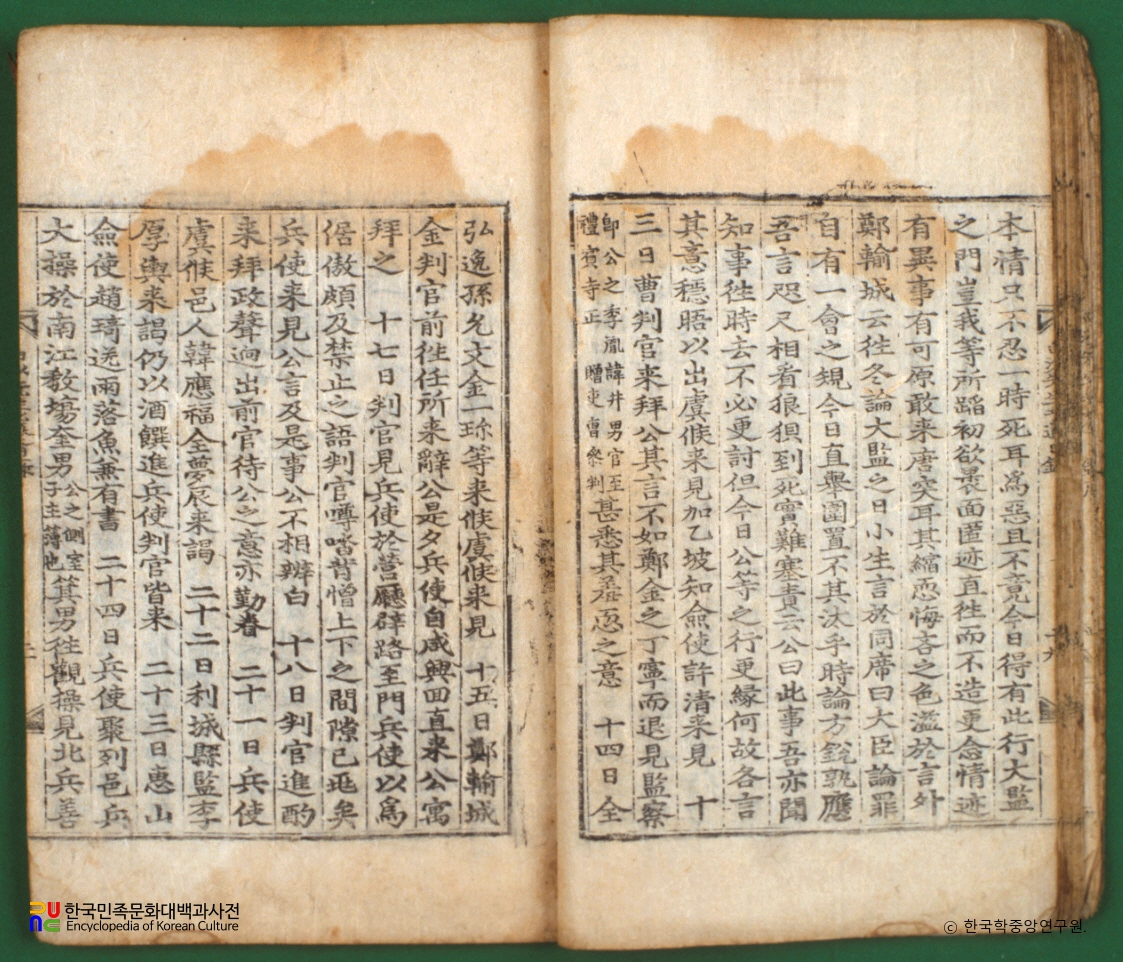 本情只不忍一時死耳爲惡且不竟今日得有此行大監
之門豈我等所蹈初欲裹面匿迹直徃而不造更念情迹
有異事有可原敢来唐突耳其縮恧悔吝之色溢於言外
鄭輸城云徃冬論大監之日小生言於同席曰大臣論罪
自有一會之規今日直舉圍置不其汰乎時論方銳孰應
吾言咫尺相看狼狽到死實難塞責云公曰此事吾亦聞
知事徃時去不必更討但今日公等之行更縁何故各言
其意穩晤以出虞候来見加乙坡知僉使許清来見 十
三日曹判官来拜公其言不如鄭金之丁寧而退見監察
卽公之李胤諱井男官至
禮賓寺正 贈吏曹叅判
甚悉其羞恧之意 十四日全
弘逸孫允文金一珎等来候虞候来見 十五日鄭輸城
金判官前徃任所来辭公是夕兵使自咸興回直来公寓
拜之 十七日判官見兵使於營廳辟路至門兵使以爲
倨傲頗及禁止之語判官噂㗳背憎上下之間隙已兆矣
兵使来見公言及是事公不相辨白 十八日判官進酌
来拜政聲迥出前官待公之意亦勤眷 二十一日兵使
虞候邑人韓應福全夢辰来謁 二十二日利城縣監李
厚輿来謁仍以酒饌進兵使判官皆来 二十三日惠山
僉使趙琦送雨落魚兼有書 二十四日兵使聚列邑兵
大操於南江教塲奎男
公之側室
子主薄也
箕男徃觀操見北兵善
한국민족문화대백과사전
Encyclopedia of Korean Culture
© 한국학중앙연구원.